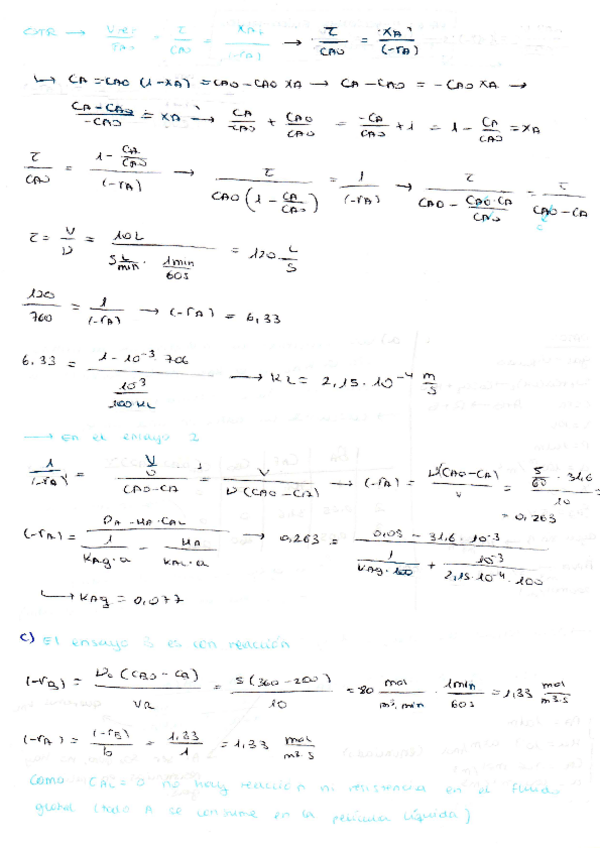 CSTR → V_R/F_A0 = τ/C_A0 = X_A/(-r_A) → τ/C_A0 = X_A/(-r_A)
↳ CA = CA0 (1-XA) = CA0 - CA0 XA → CA - CA0 = -CA0 XA →
(CA - CA0)/(-CA0) = XA → CA/-CA0 + CA0/CA0 = -CA/CA0 + 1 = 1 - CA/CA0 = XA
τ/CA0 = (1 - CA/CA0)/(-rA) → τ/(CA0(1 - CA/CA0)) = 1/(-rA) → τ/(CA0 - CA0·CA/CA0) = τ/(CA0 - CA)
τ = V/υ = 10L/(5 L/min · 1min/60s) = 120 L/s
120/760 = 1/(-rA) → (-rA) = 6,33
6.33 = (1 - 10^-3 706)/(10^3/100 KL) → KL = 2,15·10^-4 m/s.
→ En el ensayo 2
1/(-rA) = (V/υ)/(CA0 - CA) = V/(υ(CA0 - CA)) → (-rA) = υ(CA0 - CA)/V = (5/60 · 31,6)/10 = 0,263
(-rA) = (PA - HA·CAL)/(1/(KAg·a) - HA/(KAL·a)) → 0,263 = (0,05 - 31,6·10^-3)/(1/(KAg·100) + 10^-3/(2,15·10^-4·100))
↳ KAg = 0,077
c) El ensayo 3 es con reacción
(-rB) = υ0 (CB0 - CB)/VR = 5(360 - 200)/10 = 80 mol/m³·min · 1min/60s = 1,33 mol/m³·s
(-rA) = (-rB)/b = 1,33/1 = 1,33 mol/m³·s
Como CAL = 0 no hay reacción ni resistencia en el fluido
global (todo A se consume en la película líquida)